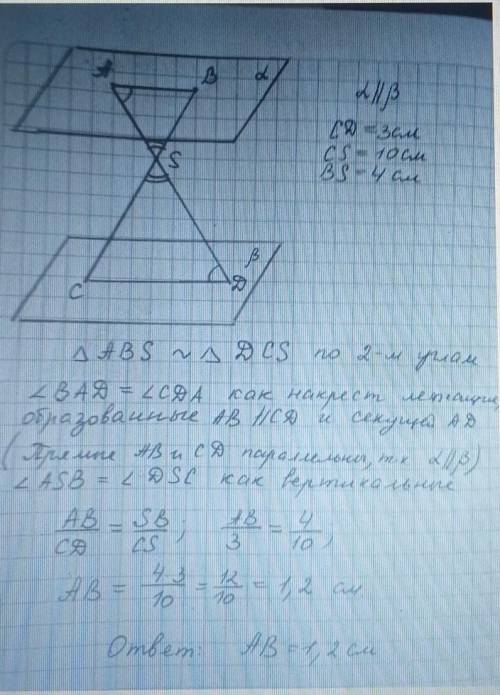 A B α
α∥β
CD = 3 см
CS = 10 см
BS = 4 см
S
β
C D
△ ABS ~ △ DCS по 2-м углам
∠BAD = ∠CDA как накрест лежащие
образованные AB ∥ CD и секущей AD
(Прямые AB и CD параллельны, т.к α∥β)
∠ASB = ∠DSC как вертикальные
AB/CD = SB/CS; AB/3 = 4/10,
AB = 4·3/10 = 12/10 = 1,2 см
Ответ: AB = 1,2 см